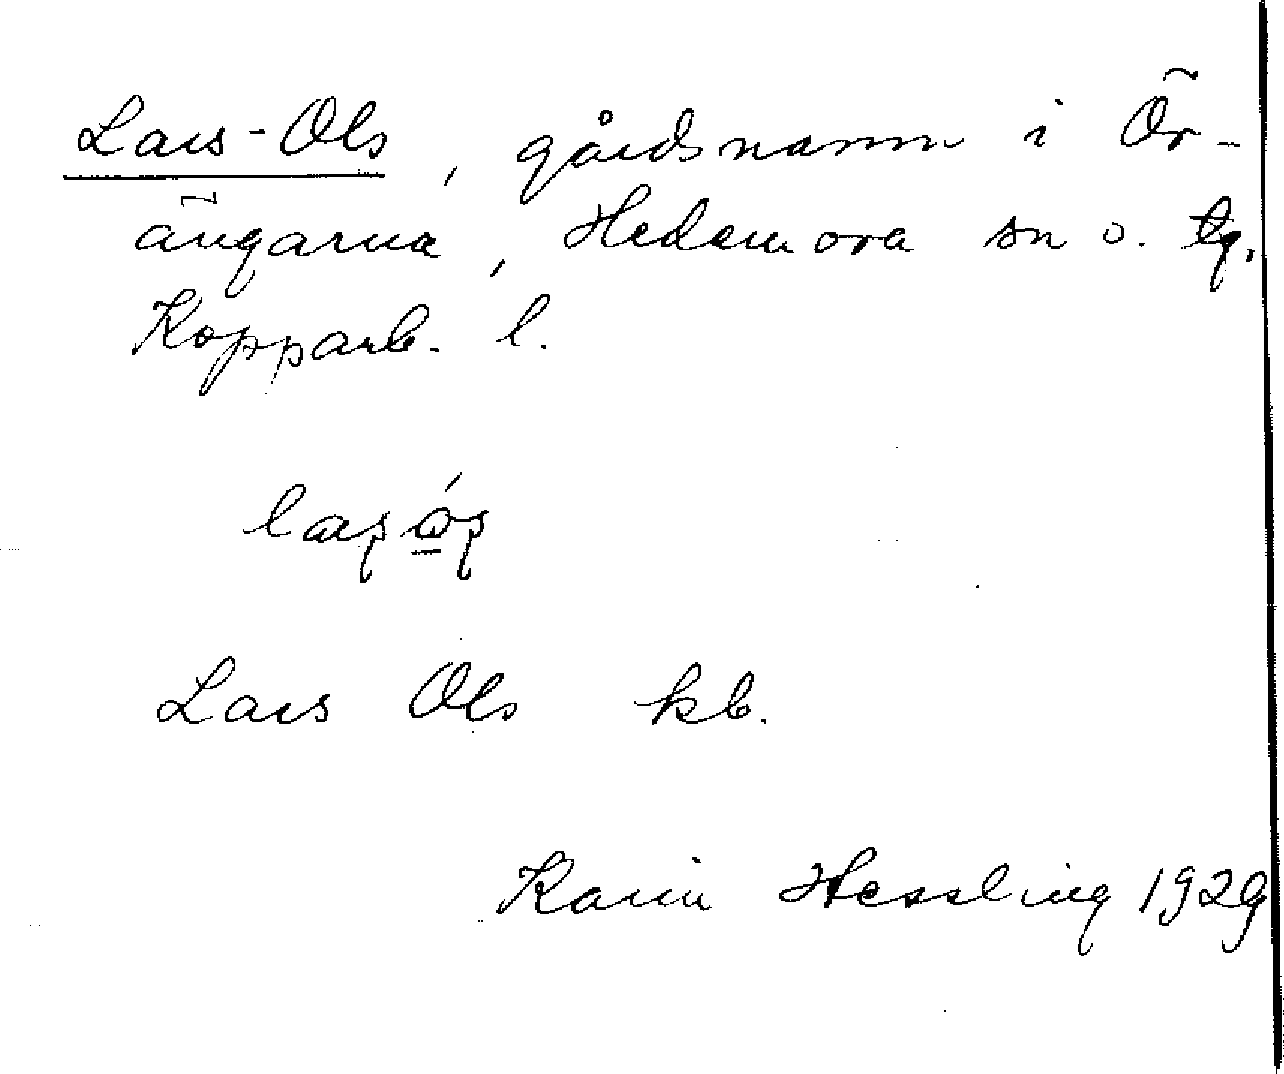 Lars-Ols, gårdsnamn i Ör-
ängarna, Hedemora sn o. tg.
Kopparb. l.
Lars Ols kb.
Karin Hessling 1929